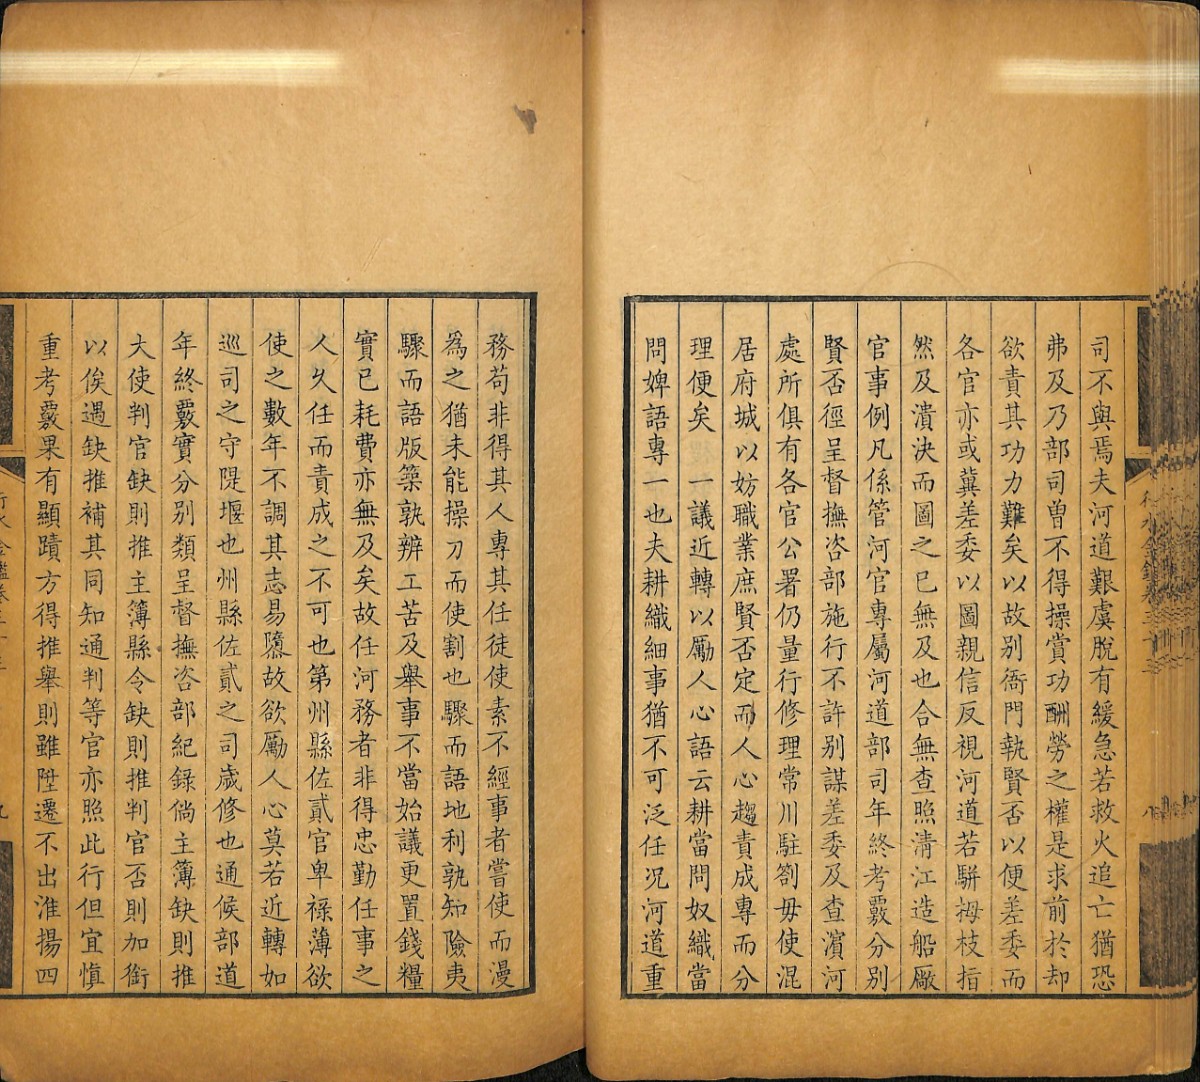 司不與焉夫河道艱虞脫有緩急若救火追亡猶恐
弗及乃部司曽不得操賞功酬勞之權是求前於却
欲責其功力難矣以故别衙門執賢否以便差委而
各官亦或冀差委以圖親信反視河道若駢拇枝指
然及潰決而圖之已無及也合無查照淸江造船廠
官事例凡係管河官專屬河道部司年終考覈分别
賢否徑呈督撫咨部施行不許别謀差委及查濱河
處所俱有各官公署仍量行修理常川駐劄毋使混
居府城以妨職業庶賢否定而人心趨責成專而分
理便矣 一議近轉以勵人心語云耕當問奴織當
問婢語專一也夫耕織細事猶不可泛任况河道重
務苟非得其人專其任徒使素不經事者嘗使而漫
爲之猶未能操刀而使割也驟而語地利孰知險夷
驟而語版築孰辨工苦及舉事不當始議更置錢糧
實已耗費亦無及矣故任河務者非得忠勤任事之
人久任而責成之不可也第州縣佐貳官卑祿薄欲
使之數年不調其志易隳故欲勵人心莫若近轉如
巡司之守隄堰也州縣佐貳之司歲修也通候部道
年終覈實分别類呈督撫咨部紀錄倘主簿缺則推
大使判官缺則推主簿縣令缺則推判官否則加銜
以俟遇缺推補其同知通判等官亦照此行但宜愼
重考覈果有顯蹟方得推舉則雖陞遷不出淮揚四
行水金鑑卷三十三
九
八